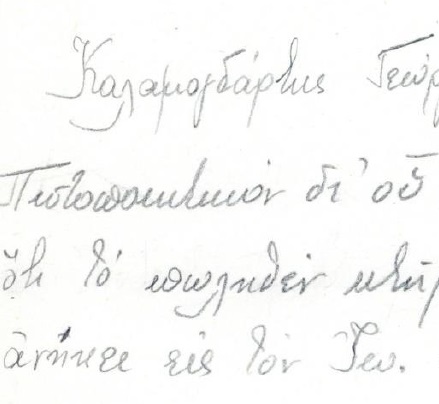 Καλαμογδάρτης Γεώρ
Πιστοποιητικόν δι' οὗ
ὅτι τό πωληθέν κτῆμ
ἀνῆκε εἰς τόν Γεω.